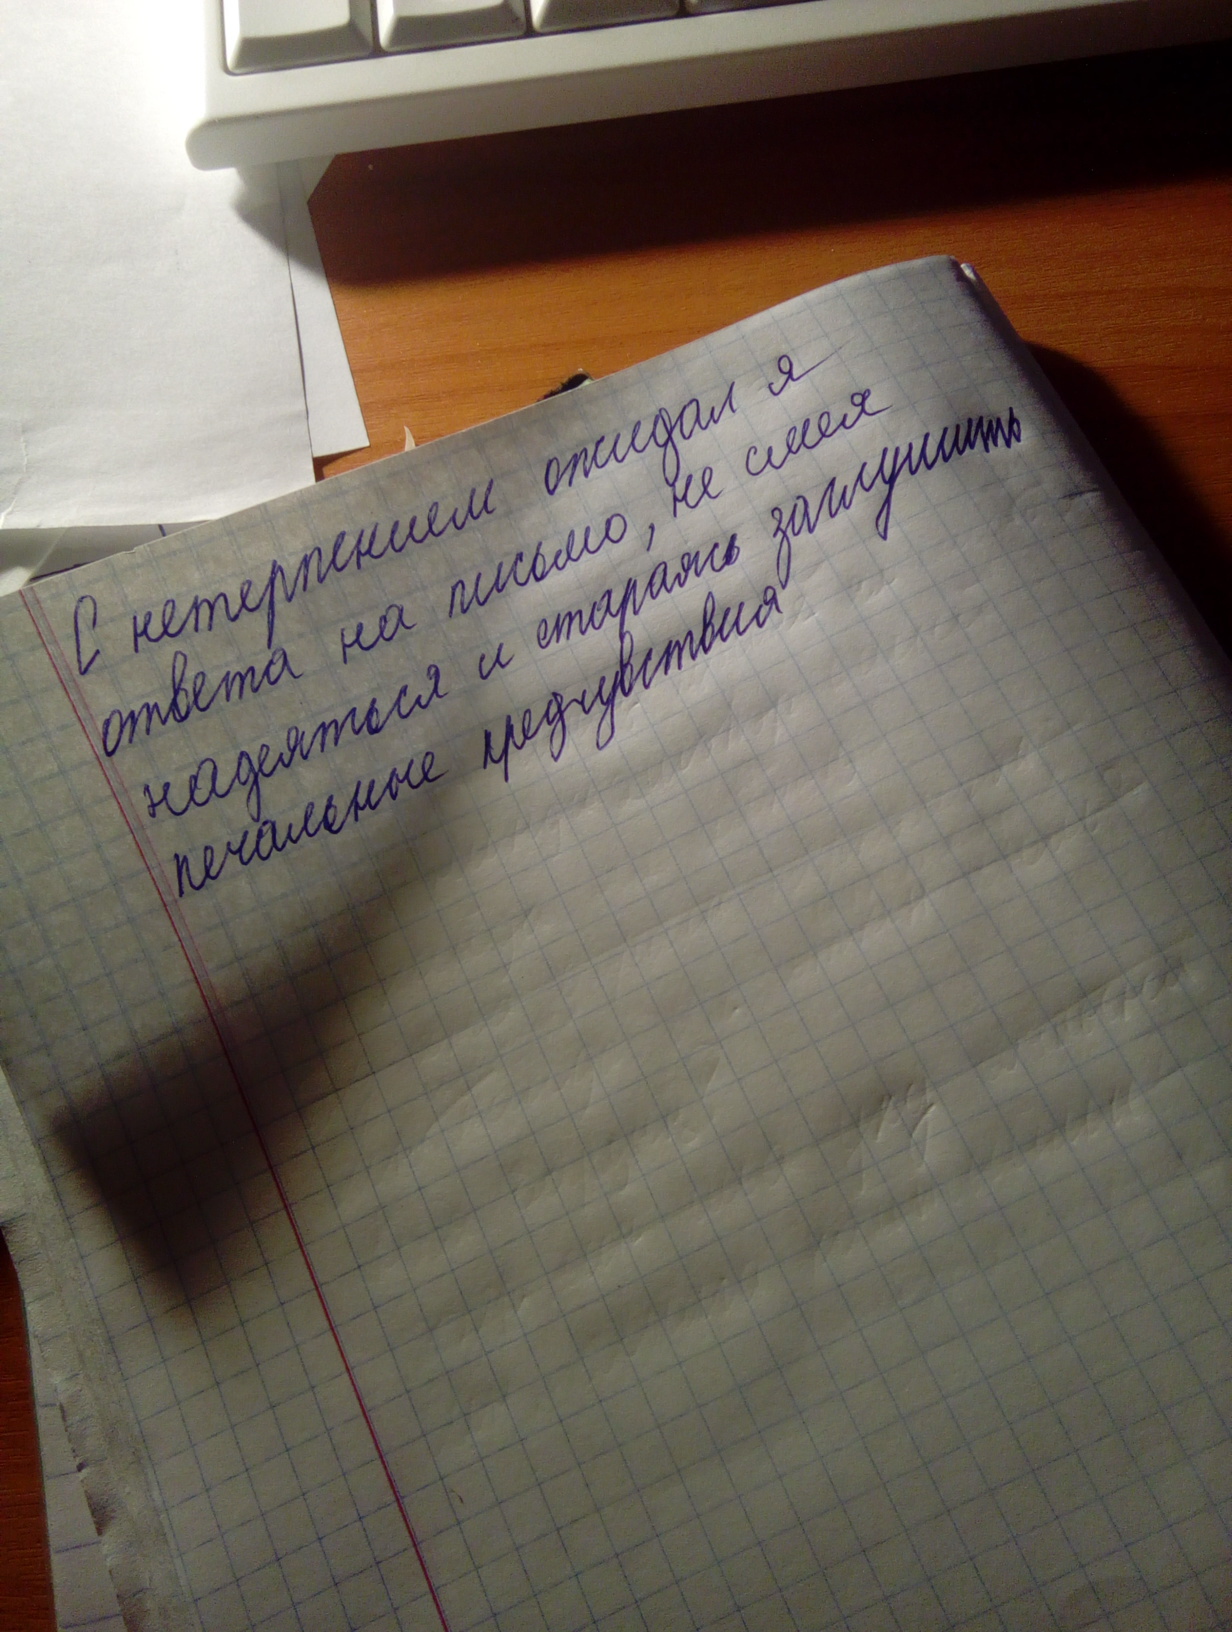 С нетерпением ожидал я
ответа на письмо, не смея
надеяться и стараясь заглушить
печальные предчувствия